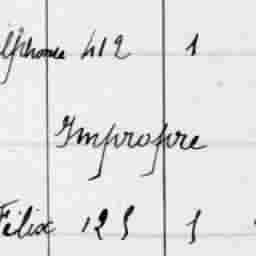 Alphonse 412 1
Impropre
Félix 125 1